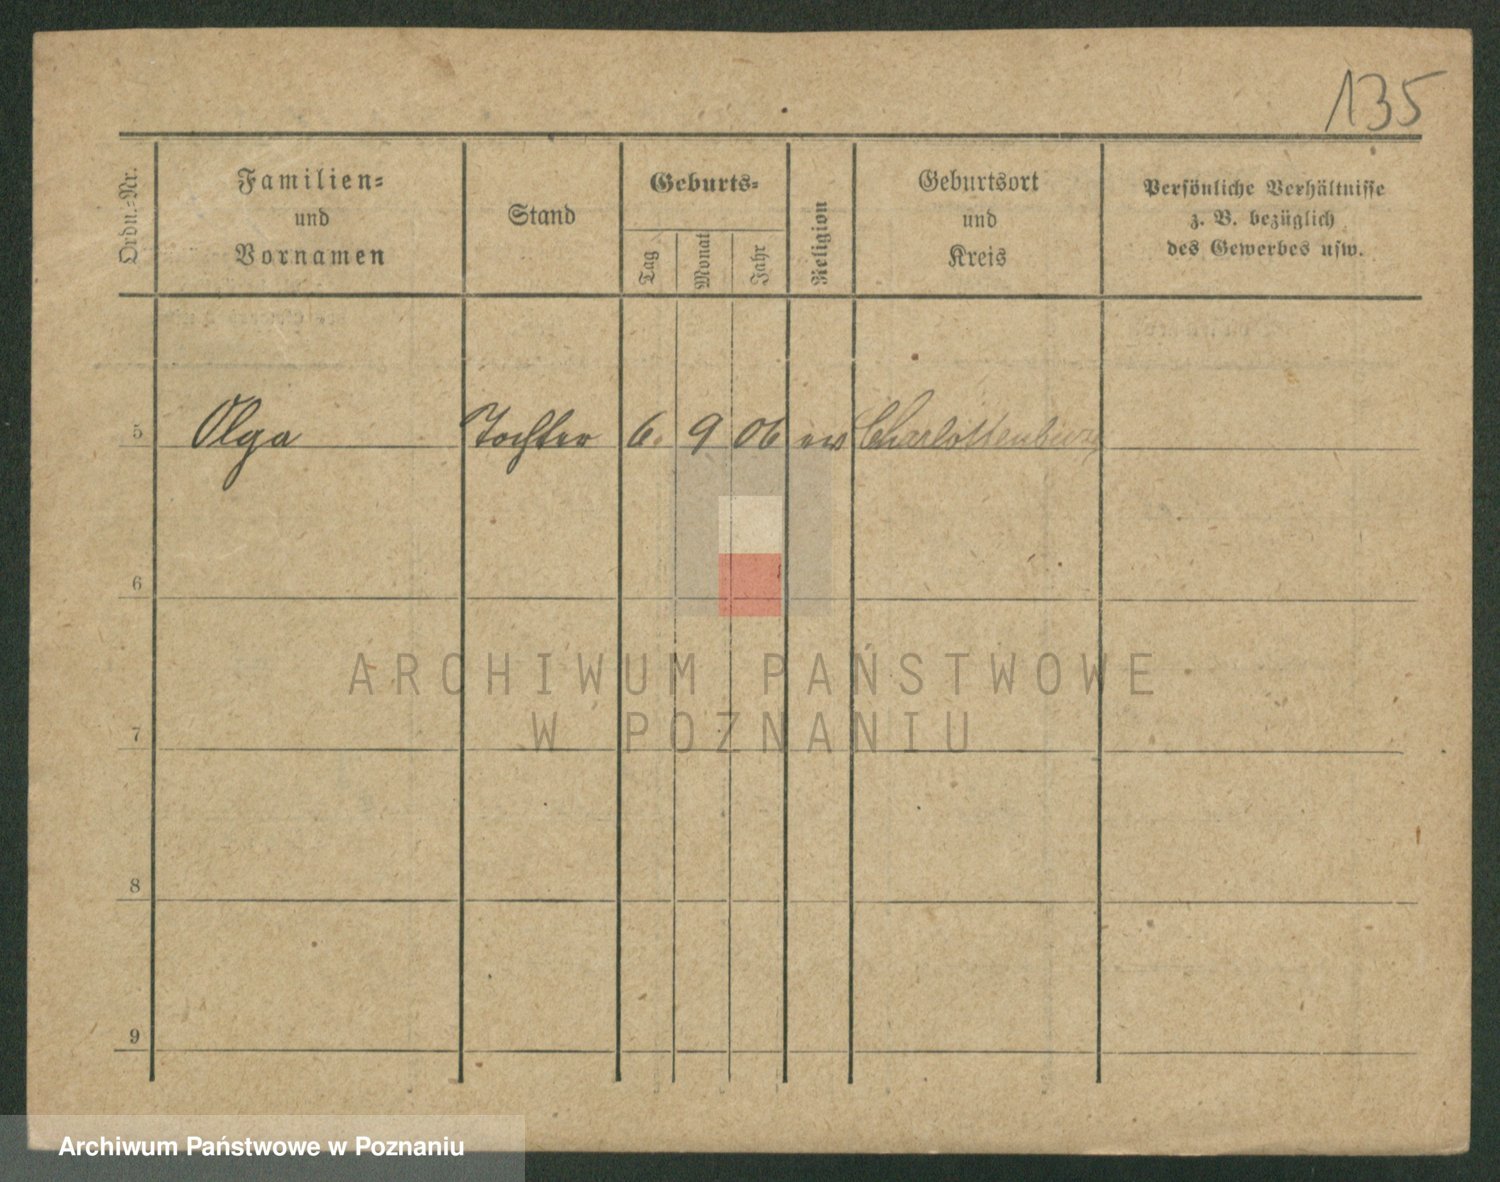 135
Ordn.-Nr.
Familien-
und
Vornamen
Stand
Geburts-
Tag
Monat
Jahr
Religion
Geburtsort
und
Kreis
Persönliche Verhältnisse
z. B. bezüglich
des Gewerbes usw.
5 Olga Tochter 6. 9 06 ev Charlottenburg
6
7
8
9
ARCHIWUM PAŃSTWOWE
W POZNANIU
Archiwum Państwowe w Poznaniu